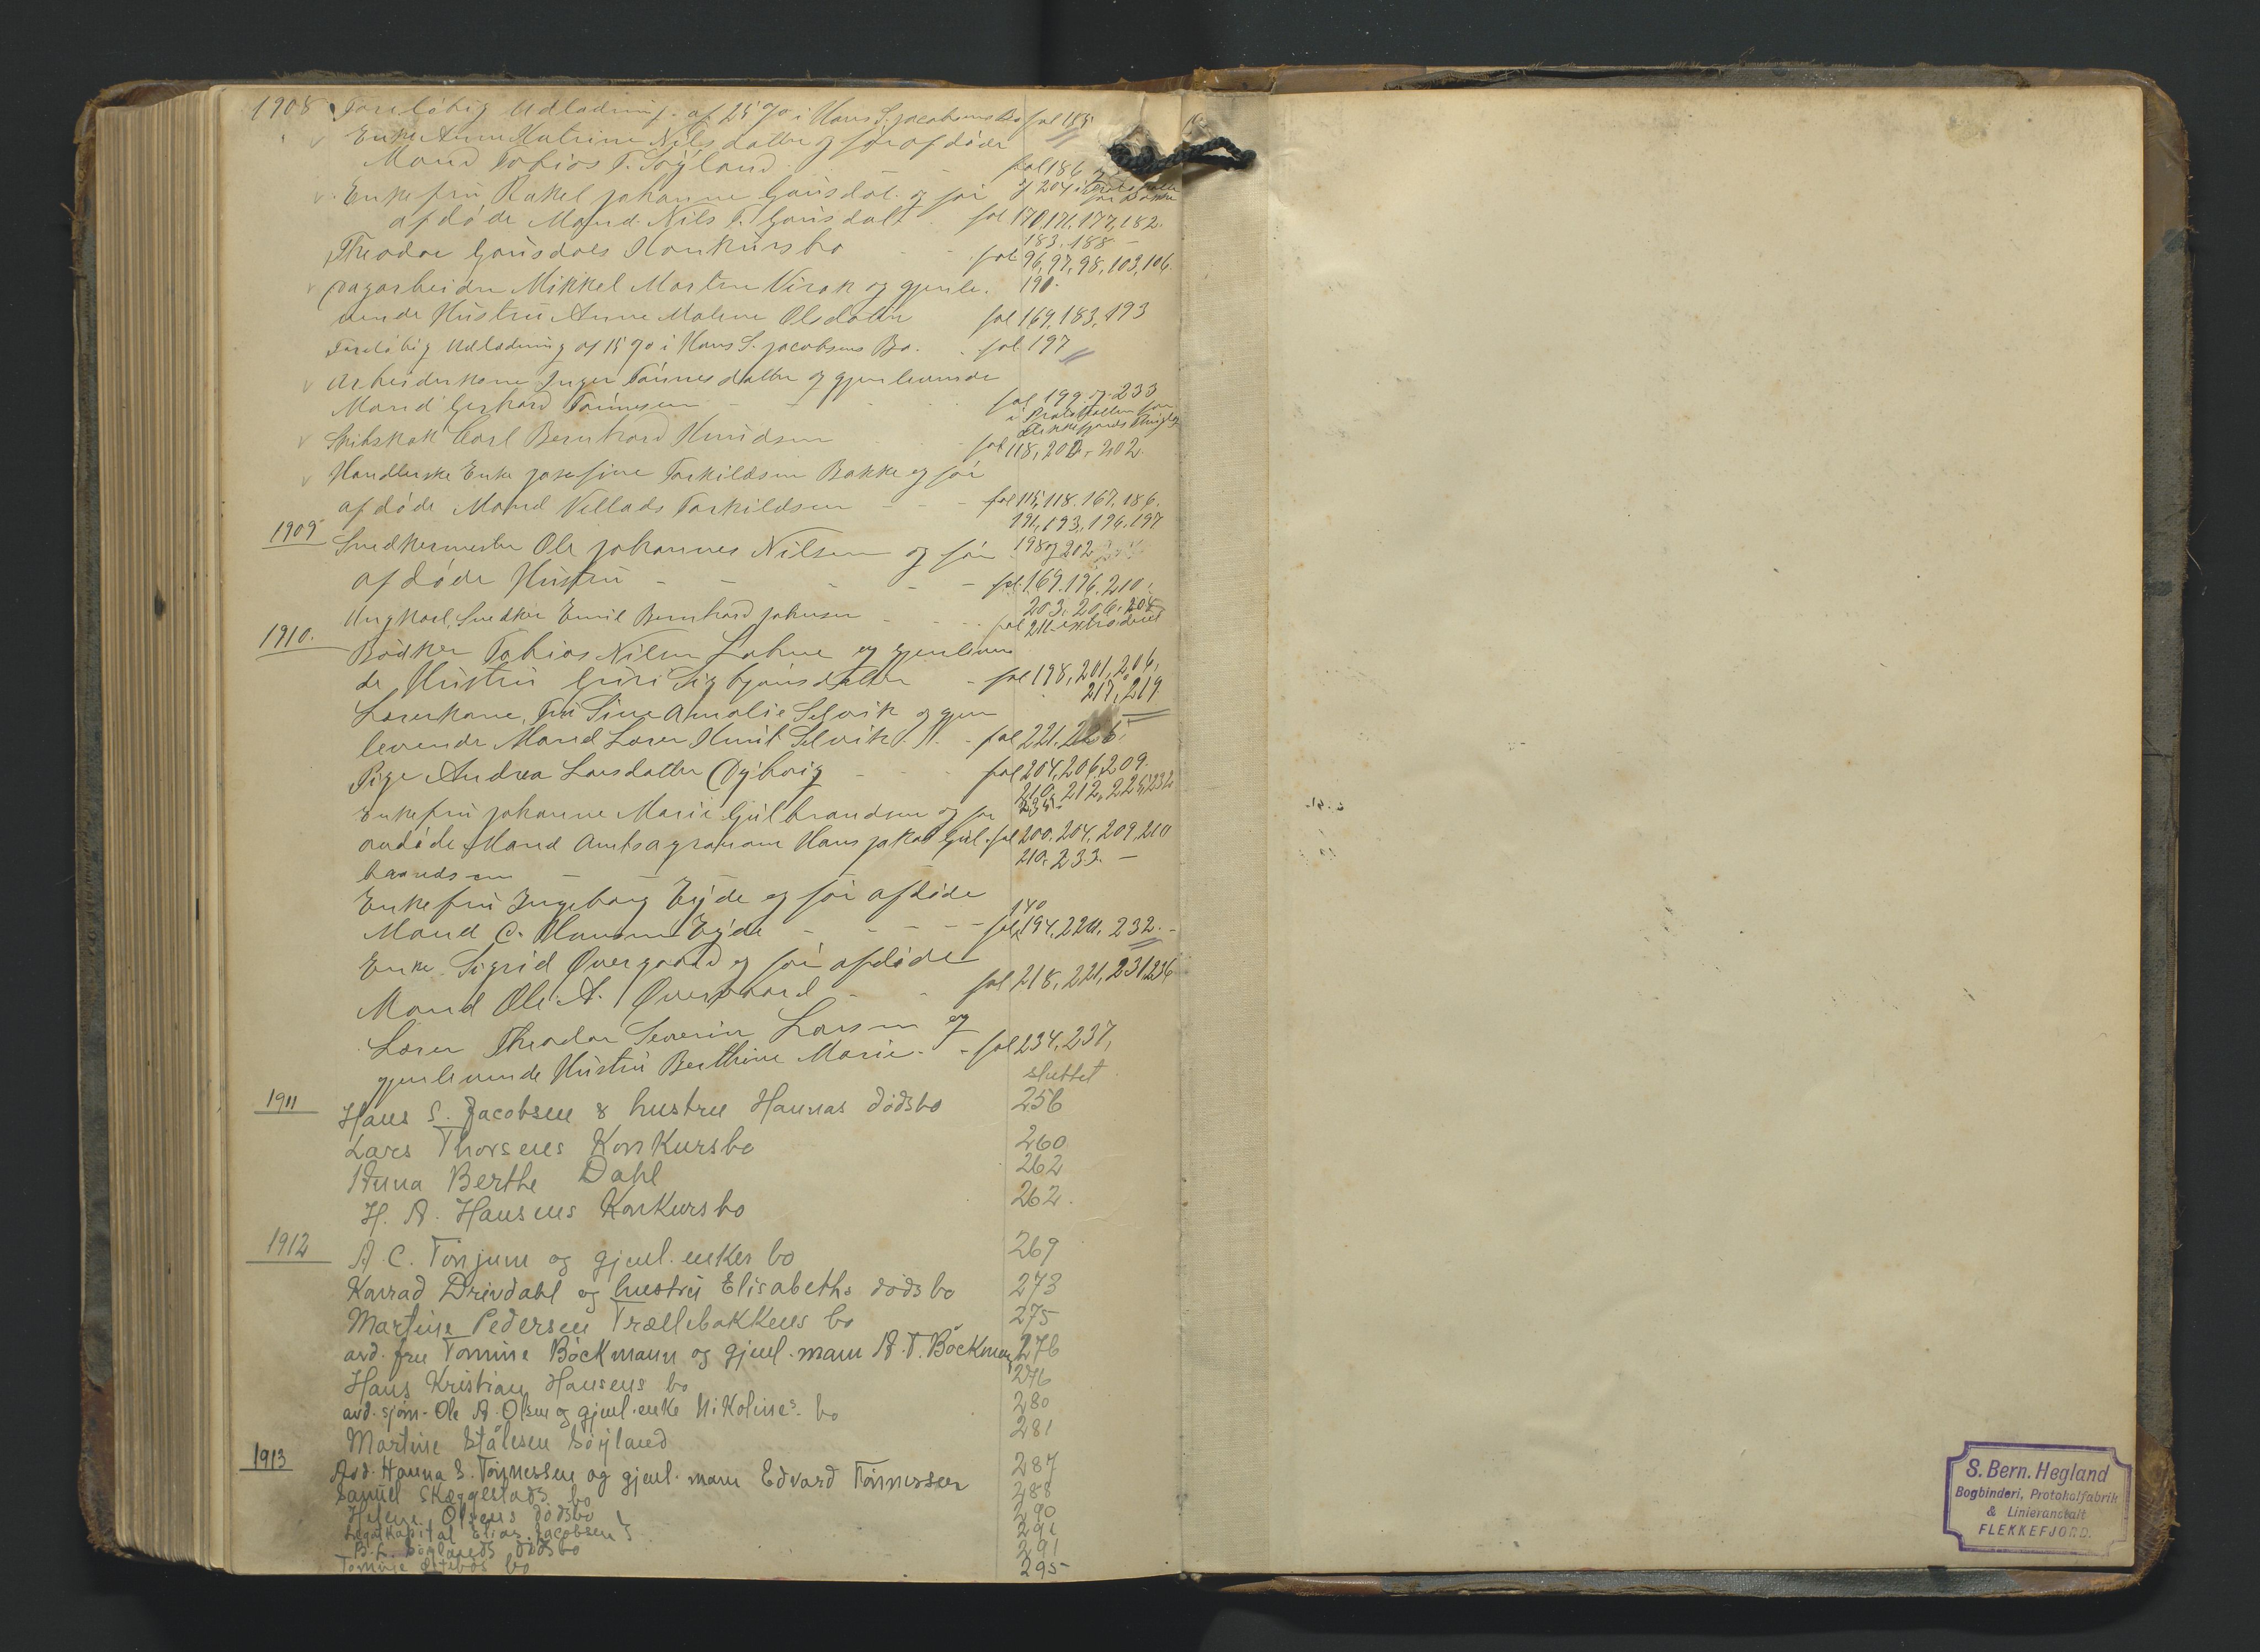 1908 Foreløbig Udlodning af 25 % i Hans S. Jacobsens Bo fol 185
Enke Anne Malene Nilsdatter og før afdøde
Mand Tobias T. Söyland fol 186 og
Enkefru Rakel Johanne Gausdal og før og 204 i
afdøde Mand Nils F. Gausdal fol 170, 171, 177, 182.
183. 188 –
Theodor Gausdals Konkursbo fol 96, 97, 98, 103, 106.
190.
Dagarbeider Mikkel Martin Virak og gjenle-
vende Hustru Anne Malene Olsdatter fol 169, 183, 193
Foreløbig Udlodning af 15 % i Hans S. Jacobsens Bo. fol 197
Arbeiderkone Inger Tönnesdatter og gjenlevende
Mand Gerhard Tönnesen fol 199 og 233
i Protokollen for
Flekkefjords
Skibskok Carl Bernhard Knudsen fol 118, 202
Handlerske Enke Josefine Torkildsen Bakke og før
afdøde Mand Villads Torkildsen fol 115, 118. 167, 186.
191, 193, 196, 197
198 og 202
1909 Snedkermester Ole Johannes Nilsen og før
afdøde Hustru fol. 169. 196. 210.
203. 206. 208
Ungkarl, Snedker Emil Bernhard Johnsen fol 211 extraderet
1910. Bödker Tobias Nilsen Lohne og gjenleven
de Hustru Guri Sigbjörnsdatter fol 198, 201, 206,
217, 219
Lærerkone, Fru Sine Amalie Selvik og gjen
levende Mand Lærer Knut Selvik fol 221.
Pige Andrea Larsdatter Dybvig fol 204, 206, 209.
210, 212, 225, 232
Enkefru Johanne Marie Gulbrandsen og før
avdøde Mand Amtsagronom Hans Jakob Gul- fol 200. 204. 209 210
brandsen 210. 233. –
Enkefru Ingeborg Eyde og för afdöde 140
Mand C. Hansen Eyde fol 194, 220. 232. –
Enke Sigrid Øvergaard og för afdöde
Mand Ole A. Øvergaard fol 218, 221, 231, 236
Lærer Theodor Severin Larsen og
gjenlevende Hustru Berthine Marie. fol 234, 237,
sluttet
1911 Hans S. Jacobsen & hustru Hannas dödsbo 256
Lars Thorsens Konkursbo 260
Anna Berthe Dahl 262
H. A. Hansens Konkursbo 262.
1912 A. C. Tönjum og gjenl. enkes bo 269
Konrad Drivdahl og hustru Elisabeths dödsbo 273
Martine Pedersen Trællebakkens bo 275
avd. fru Tomine Böckmann og gjenl. mann A. T. Böckmann 276
Hans Kristian Hansens bo 276
avd. sjöm. Ole A. Olsen og gjenl. enke Nikolines bo 280
Martine Stålesen Söyland 281
1913 Avd. Hanna S. Tönnessen og gjenl. mann Edvard Tönnessen 287
Samuel Skeggestads bo 288
Helene Olsens dödsbo 290
Legatkapital Elias Jacobsen 291
B. L. Söylands dödsbo 291
Tomine bo 295
S. Bern. Hegland
Bogbinderi, Protokolfabrik
& Linieranstalt
FLEKKEFJORD.